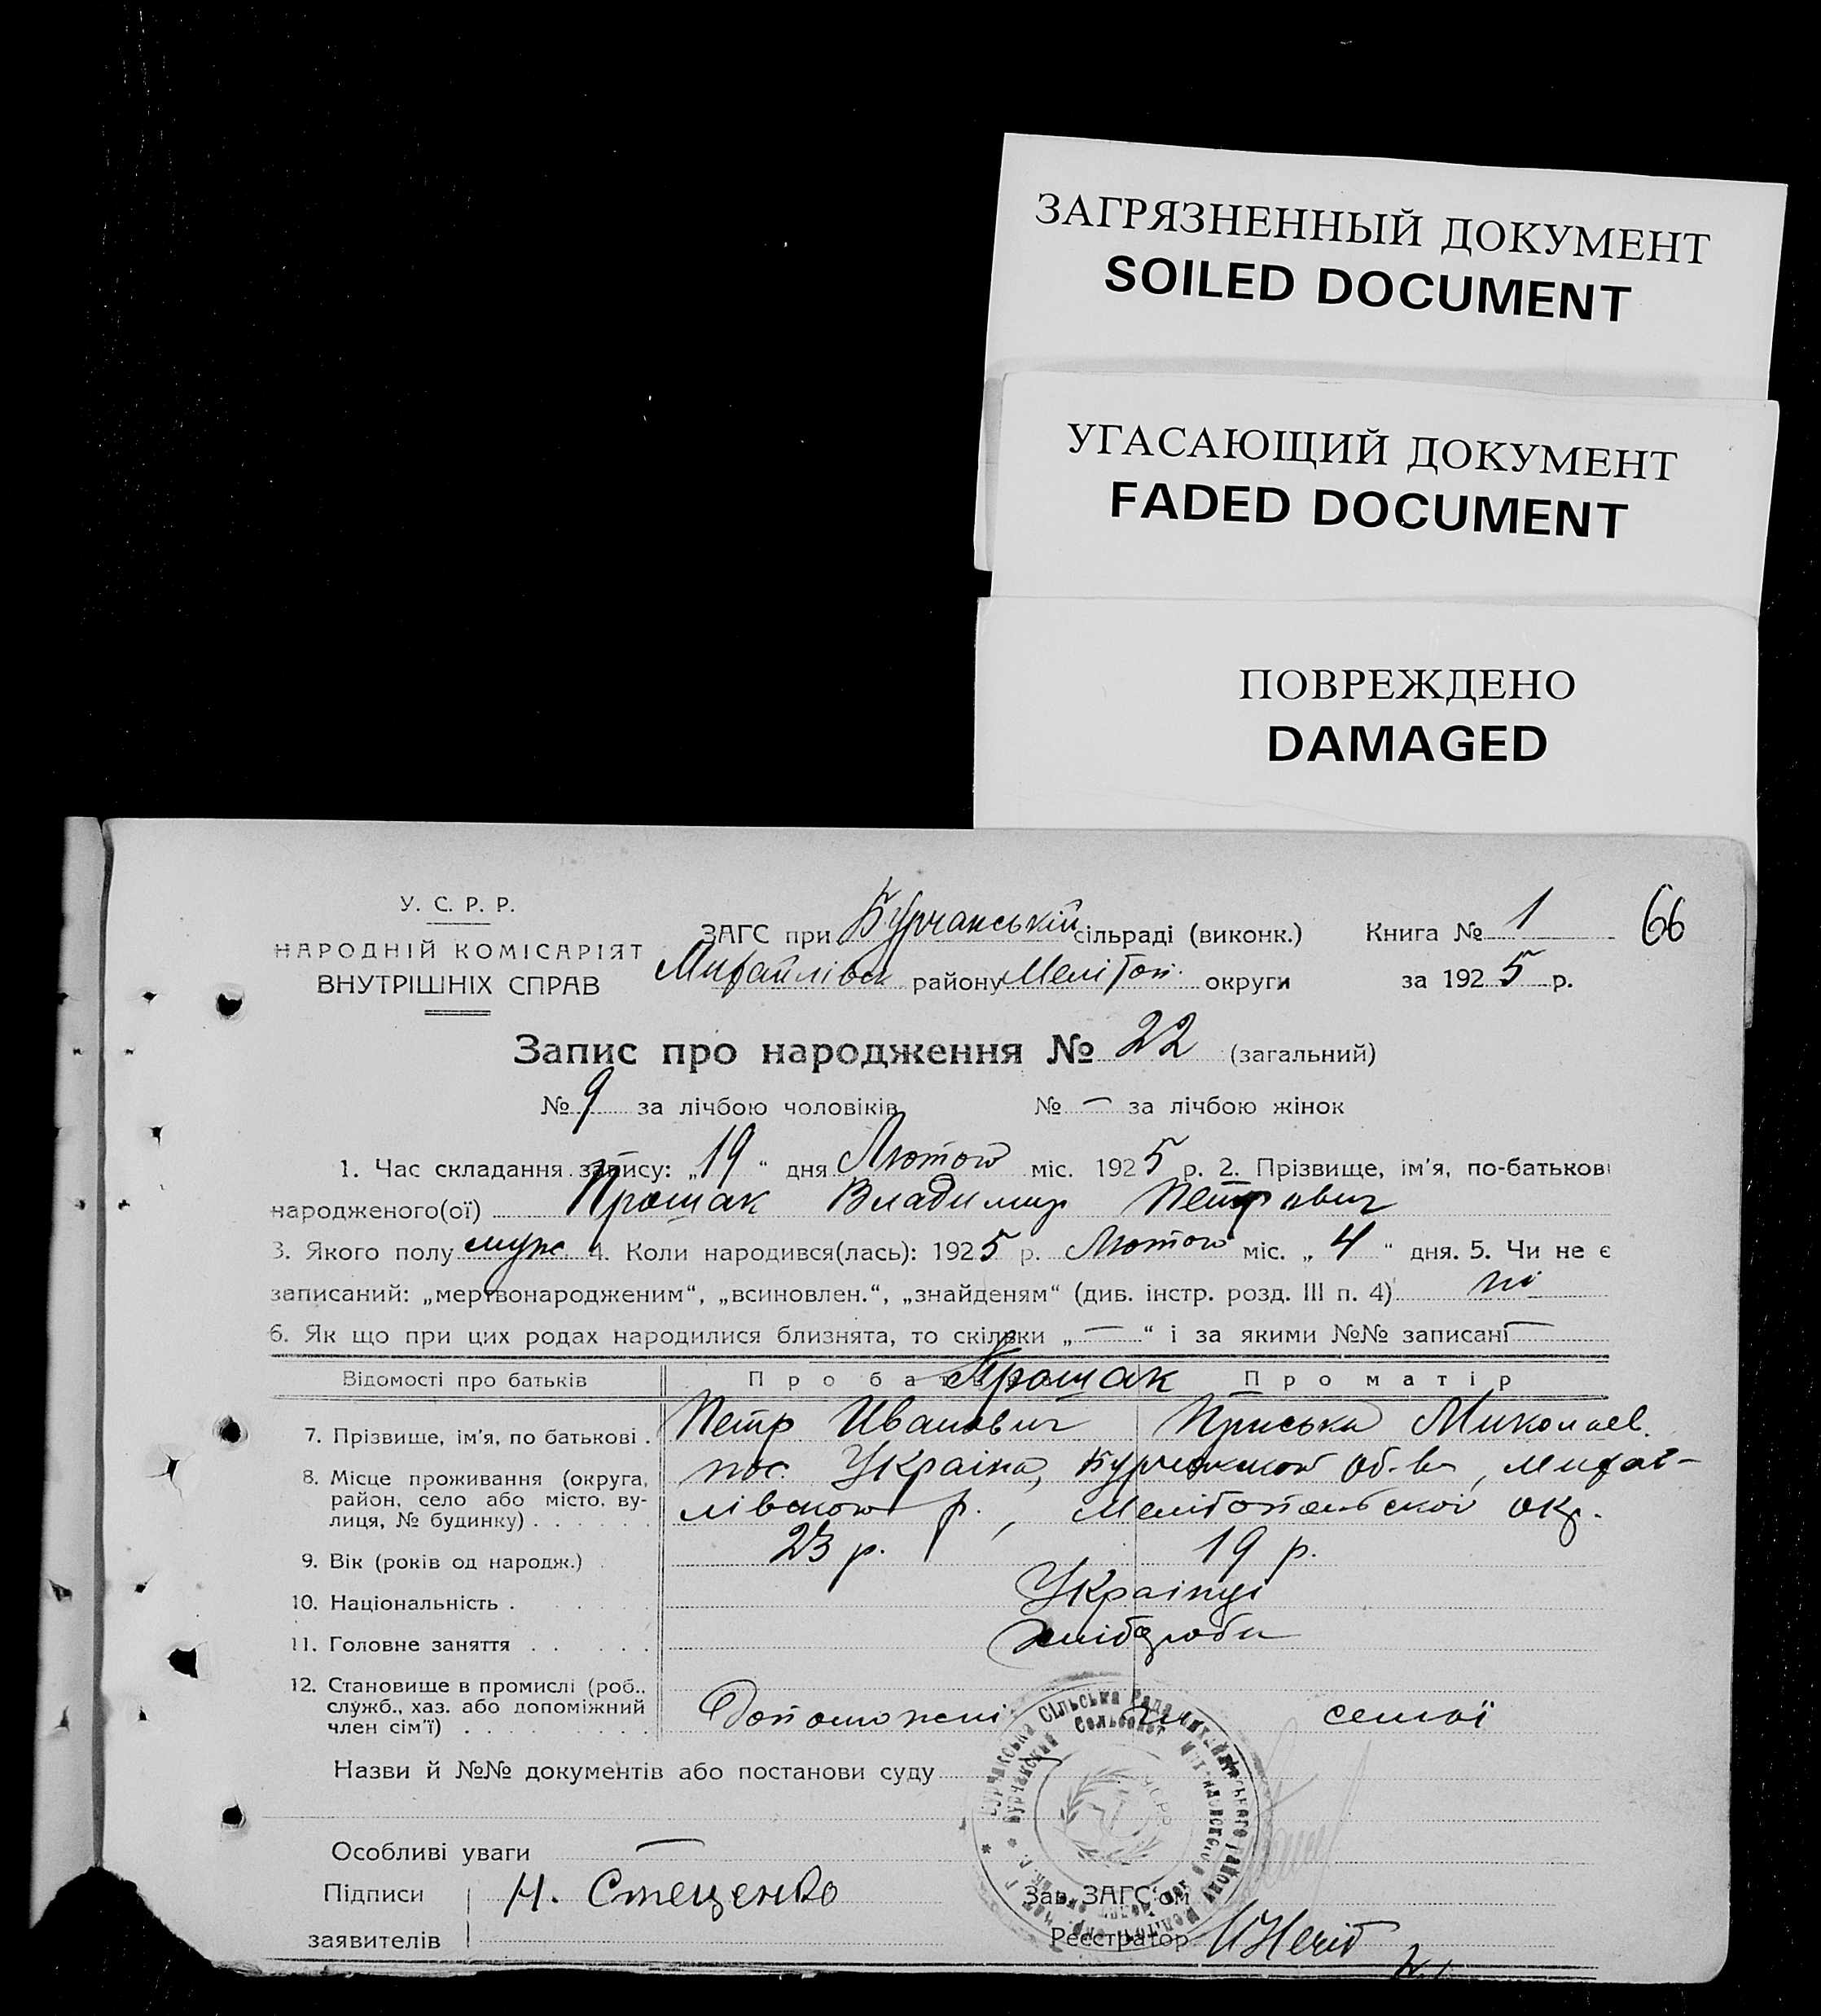 ЗАГРЯЗНЕННЫЙ ДОКУМЕНТ
SOILED DOCUMENT
УГАСАЮЩИЙ ДОКУМЕНТ
FADED DOCUMENT
ПОВРЕЖДЕНО
DAMAGED
У. С. Р. Р.
НАРОДНІЙ КОМІСАРІЯТ
ВНУТРІШНІХ СПРАВ
ЗАГС при Бурчанській сільраді (виконк.) Книга № 1 66
Михайлівськ району Мелітоп. округи за 1925 р.
Запис про народження № 22 (загальний)
№ 9 за лічбою чоловіків № — за лічбою жінок
1. Час складання запису: „19“ дня Лютого міс. 1925 р. 2. Прізвище, ім'я, по-батькові
народженого(ої) Прошак Владимир Петрович
3. Якого полу муж. 4. Коли народився(лась): 1925 р. Лютого міс. „4“ дня. 5. Чи не є
записаний: „мертвонародженим“, „всиновлен.“, „знайденям“ (див. інстр. розд. III п. 4) ні
6. Як що при цих родах народилися близнята, то скільки „—“ і за якими №№ записані —
Відомості про батьків Про батька Прошак Про матір
7. Прізвище, ім'я, по батькові . Петр Иванович Приська Миколаев.
8. Місце проживання (округа, район, село або місто, вулиця, № будинку) . . . . . . пос. Україна, Бурчанської об-ва, Михай-
лівського р., Мелітопольської окр.
9. Вік (років од народж.) . 23 р. 19 р.
10. Національність . . . . . . Українці
11. Головне заняття . . . . . Хлібороби
12. Становище в промислі (роб., служб., хаз. або допоміжний член сім'ї) . . . . . . . . . Допоможні чл. семьї
Назви й №№ документів або постанови суду
Особливі уваги —
Підписи Н. Стеценко
заявителів
Зав. ЗАГС'ом
Реєстратор
Бурчакська Сільська Рада Михайлівського району